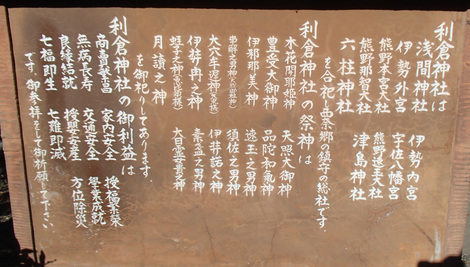 利倉神社は
浅間神社 伊勢内宮
伊勢外宮 宇佐八幡宮
熊野本宮大社 熊野速玉大社
熊野那智大社 津島神社
六柱神社
を合祀し栗永郷の鎮守の総社です。
利倉神社の祭神は
木花開耶姫神 天照大御神
豊受大御神 品陀和氣神
伊耶那美神 速玉之男神
須佐之男神
大穴牟遅神 伊弉諾之神
伊弉冉之神 素盞之男神
蛭子之神 大日孁貴之神
月讀之神
を御祀りしてあります。
利倉神社の御利益は
商売繁昌 家内安全 授福繁栄
無病長寿 交通安全 学業成就
良縁結就 授與安産 方位除災
七福即生 七難即滅
です。御参拝をして御祈願して下さい。